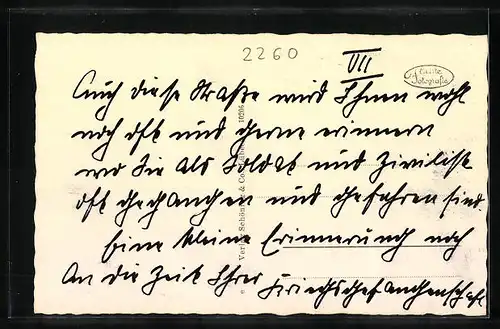 2260
VII
Echte Fotografie
Auch diese Straße wird Ihnen wohl
noch oft und gerne erinnern
wo Sie als Soldat und Zivilist
oft gegangen und gefahren sind.
Eine kleine Erinnerung noch
an die Zeit Ihrer Kriegsgefangenschaft
Verlag Schöning & Co
10206